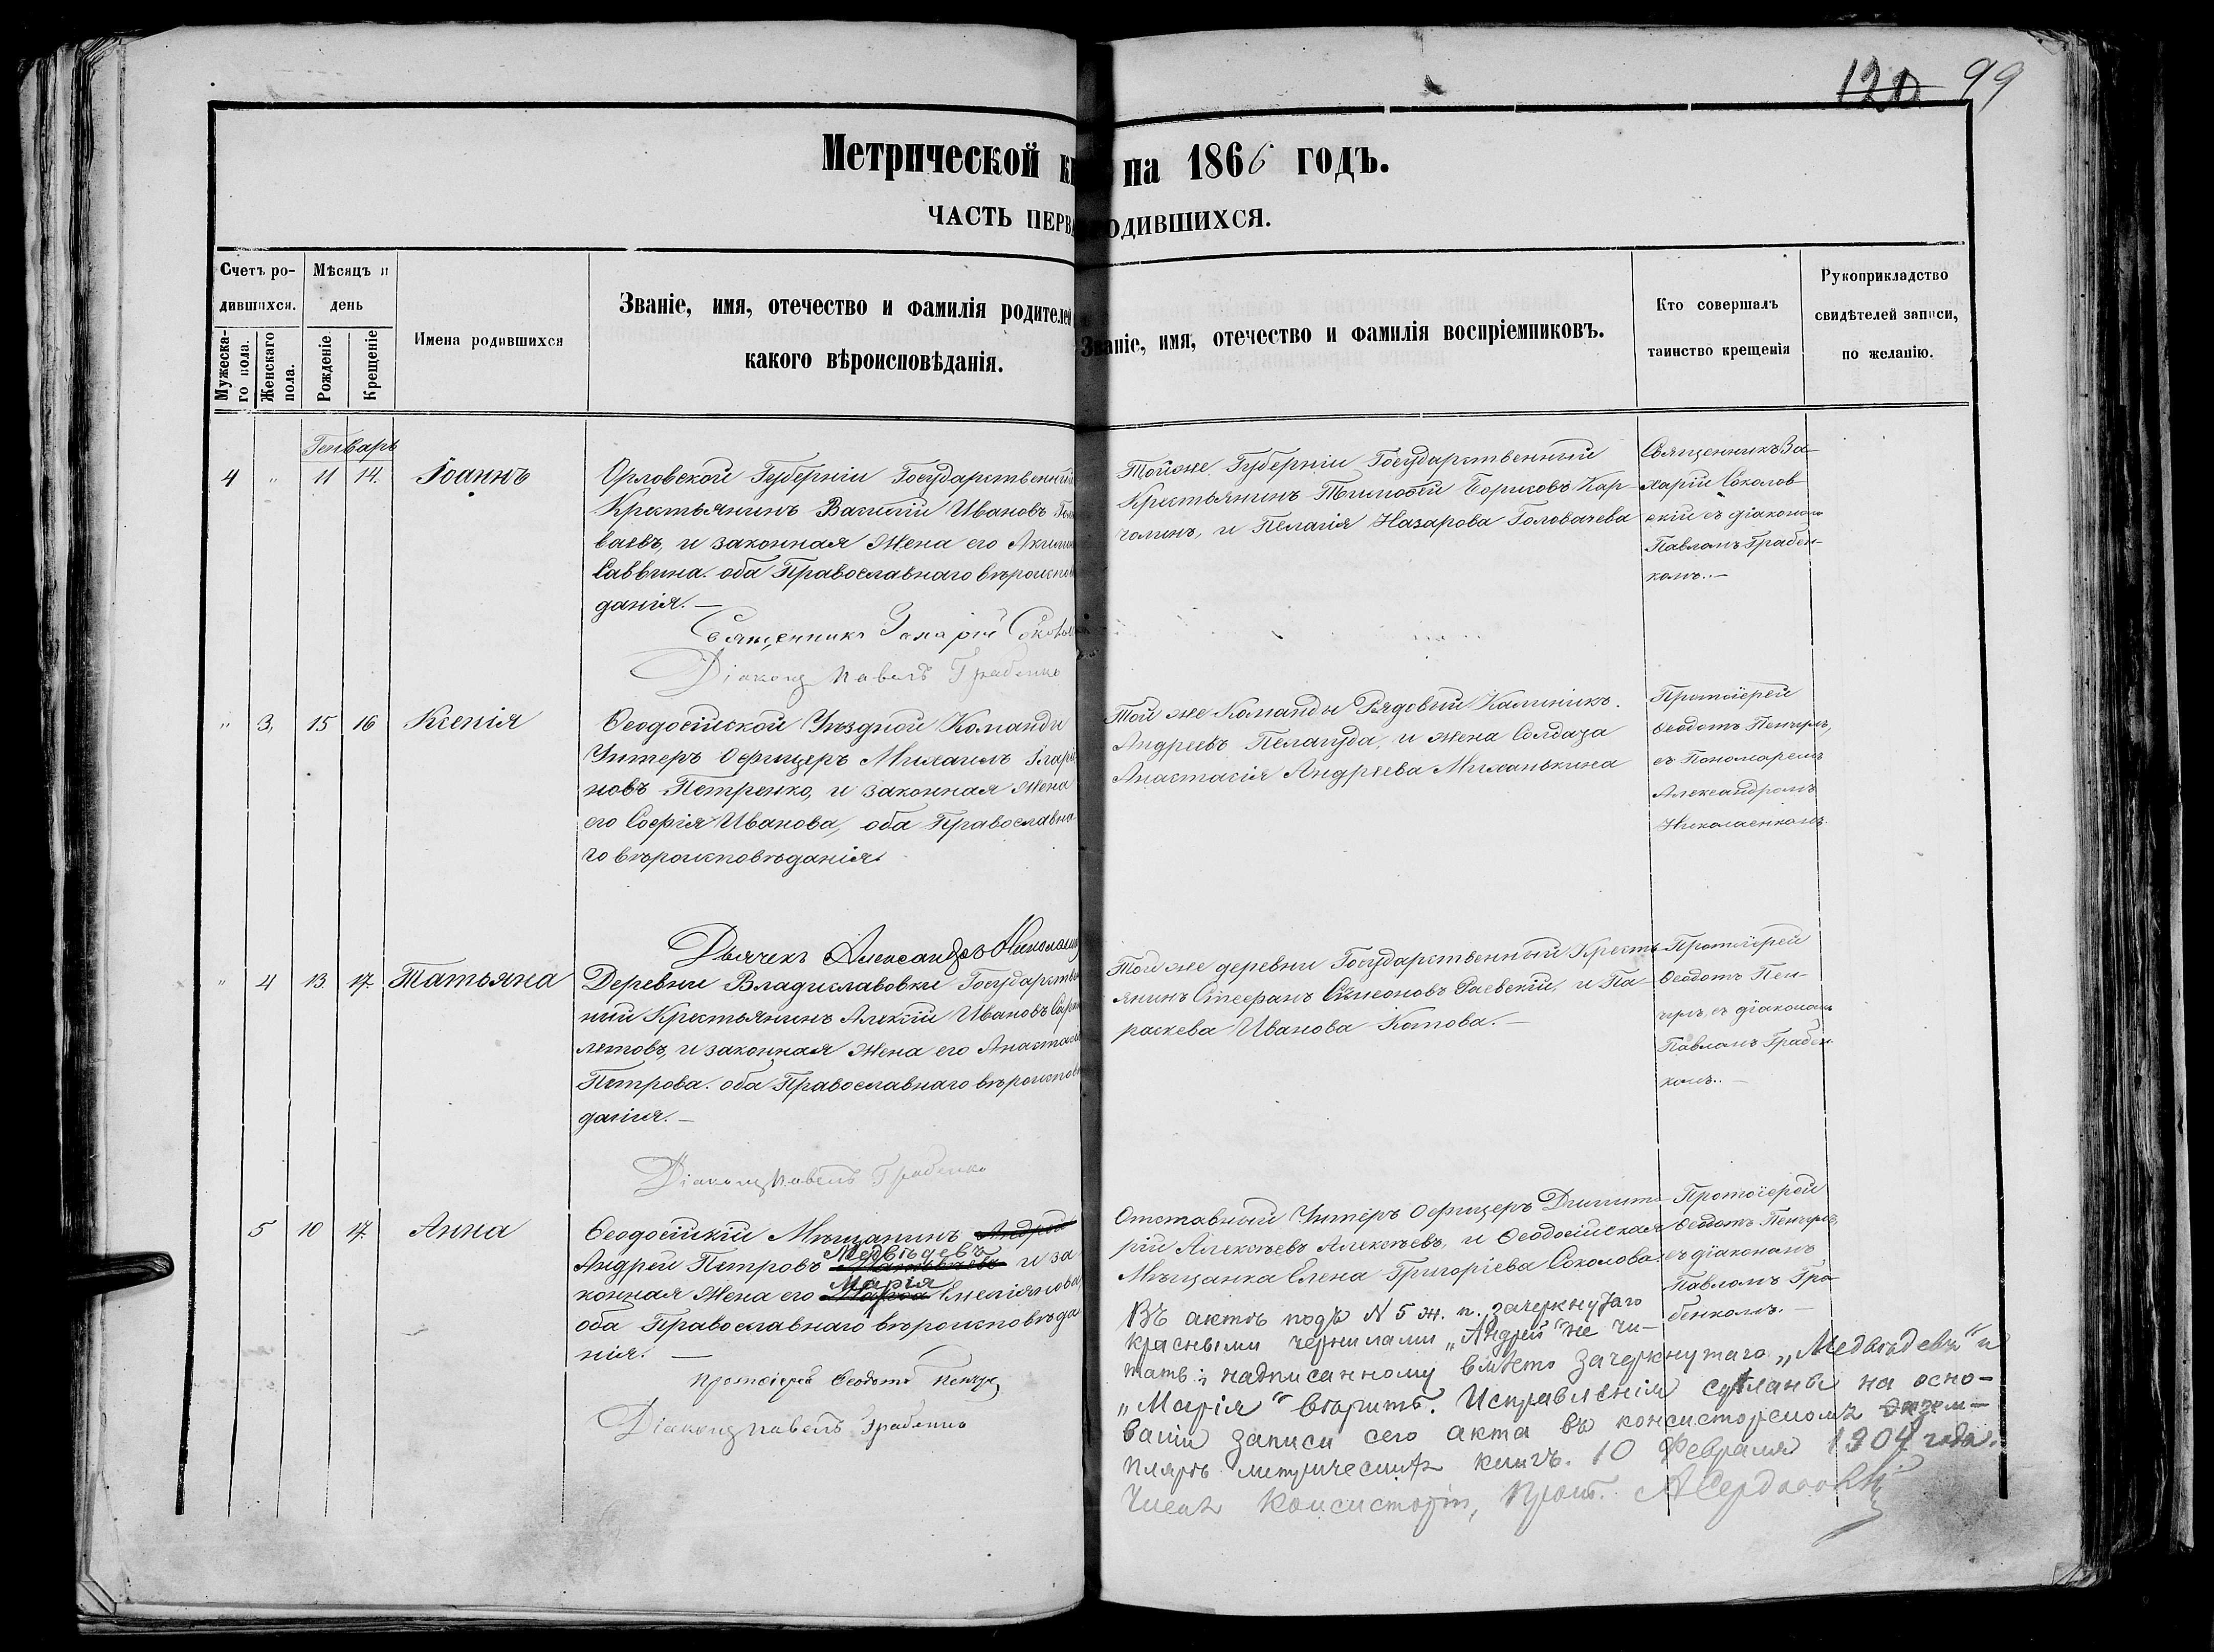 120 99
Метрической кн на 1866 годъ.
ЧАСТЬ ПЕРВА ОДИВШИХСЯ.
Счетъ ро-
дившихся.
Мужеска-
го пола.
Женскаго
пола.
Мѣсяцъ и
день
Рожденіе.
Крещеніе
Имена родившихся
Званіе, имя, отечество и фамилія родителей
какого вѣроисповѣданія.
Званіе, имя, отечество и фамилія воспріемниковъ.
Кто совершалъ
таинство крещенія
Рукоприкладство
свидѣтелей записи,
по желанію.
Генварь
4 " 11 14. Іоаннъ
Орловской Губерніи Государственный
Крестьянинъ Василій Ивановъ
ваевъ, и законная жена его
Саввина. оба Православнаго вѣроиспов
данія. —
Священникъ Захарій Соколов
Діаконъ Павелъ Грабенко
Тойже Губерніи Государственный
Крестьянинъ Тимоѳей Борисовъ Кар-
чолинъ, и Пелагія Назарова Головачева
Священникъ За-
харій Соколов-
скій съ діакономъ
Павломъ Грабен-
комъ. —
" 3, 15 16 Ксенія
Ѳеодосійской Уѣздной Команды
Унтеръ Офицеръ Михаилъ Иларі
новъ Петренко, и законная жена
его Софія Иванова, оба Православна
го вѣроисповѣданія.
Дьячекъ Александръ Николаен
Той же Команды Рядовый Калиникъ
Андреевъ Пелагуда, и жена Солдата
Анастасія Андреева Миханькина
Протоіерей
Ѳеодотъ Пенчулъ,
съ Пономаремъ
Александромъ
Николаенкомъ.
" 4 13 17. Татьяна
Деревни Владиславовки Государствен
ный Крестьянинъ Алексій Ивановъ
летовъ, и законная жена его Анастасія
Петрова. оба Православнаго вѣроиспов
данія. —
Діаконъ Павелъ Грабенко
Той же деревни Государственный Кресть
янинъ Стефанъ Симеоновъ Раевскій, и Па-
раскева Иванова Котова. —
Протоіерей
Ѳеодотъ Пен-
чулъ, съ діакономъ
Павломъ Грабен-
комъ. —
5 10 17. Анна
Ѳеодосійскій Мѣщанинъ Андрей
Медвѣдевъ
Андрей Петровъ и за
Марія
конная жена его Емеліянова,
оба Православнаго вѣроисповѣда
нія. —
Протоіерей Ѳеодотъ Пенчулъ
Діаконъ Павелъ Грабенко
Отставный Унтеръ Офицеръ Димит-
рій Алексѣевъ Алексѣевъ, и Ѳеодосійская
Мѣщанка Елена Григоріева Соколова.
Протоіерей
Ѳеодотъ Пенчулъ,
съ діакономъ
Павломъ Гра-
бенкомъ. —
Въ актѣ подъ N 5 ж. п. зачеркнутаго
красными чернилами „Андрей" не чи-
тать; надписанному вмѣсто зачеркнутаго „Медвѣдевъ" и
„Марія" вѣрить. Исправленія сдѣланы на осно-
ваніи записи сего акта въ консисторскомъ экзем-
плярѣ метрическихъ книгъ. 10 Февраля 1904 года.
Членъ Консисторіи, Прот.